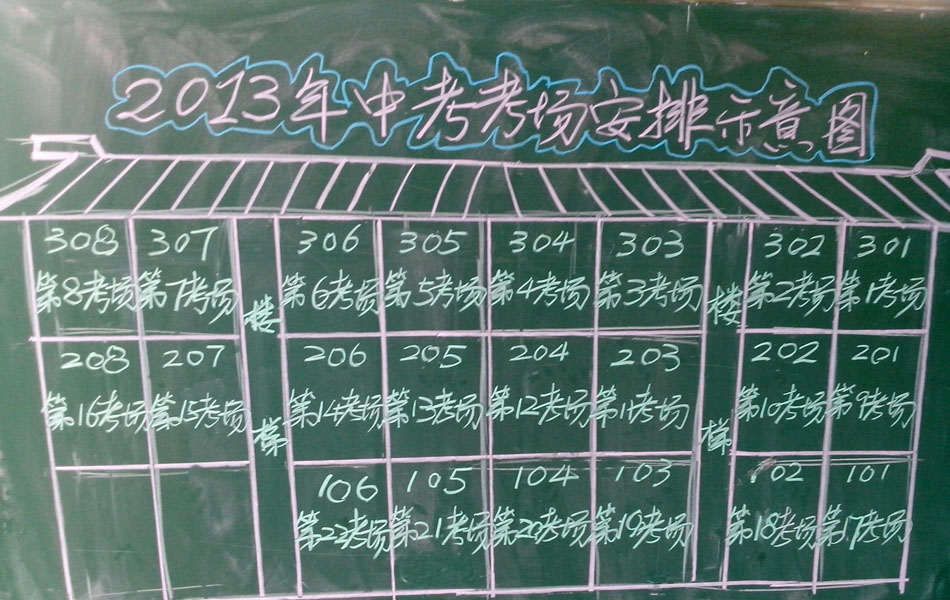 2013年中考考场安排示意图
308 307 306 305 304 303 302 301
第8考场 第7考场 楼 第6考场 第5考场 第4考场 第3考场 楼 第2考场 第1考场
208 207 206 205 204 203 202 201
第16考场 第15考场 梯 第14考场 第13考场 第12考场 第11考场 梯 第10考场 第9考场
106 105 104 103 102 101
第22考场 第21考场 第20考场 第19考场 第18考场 第17考场